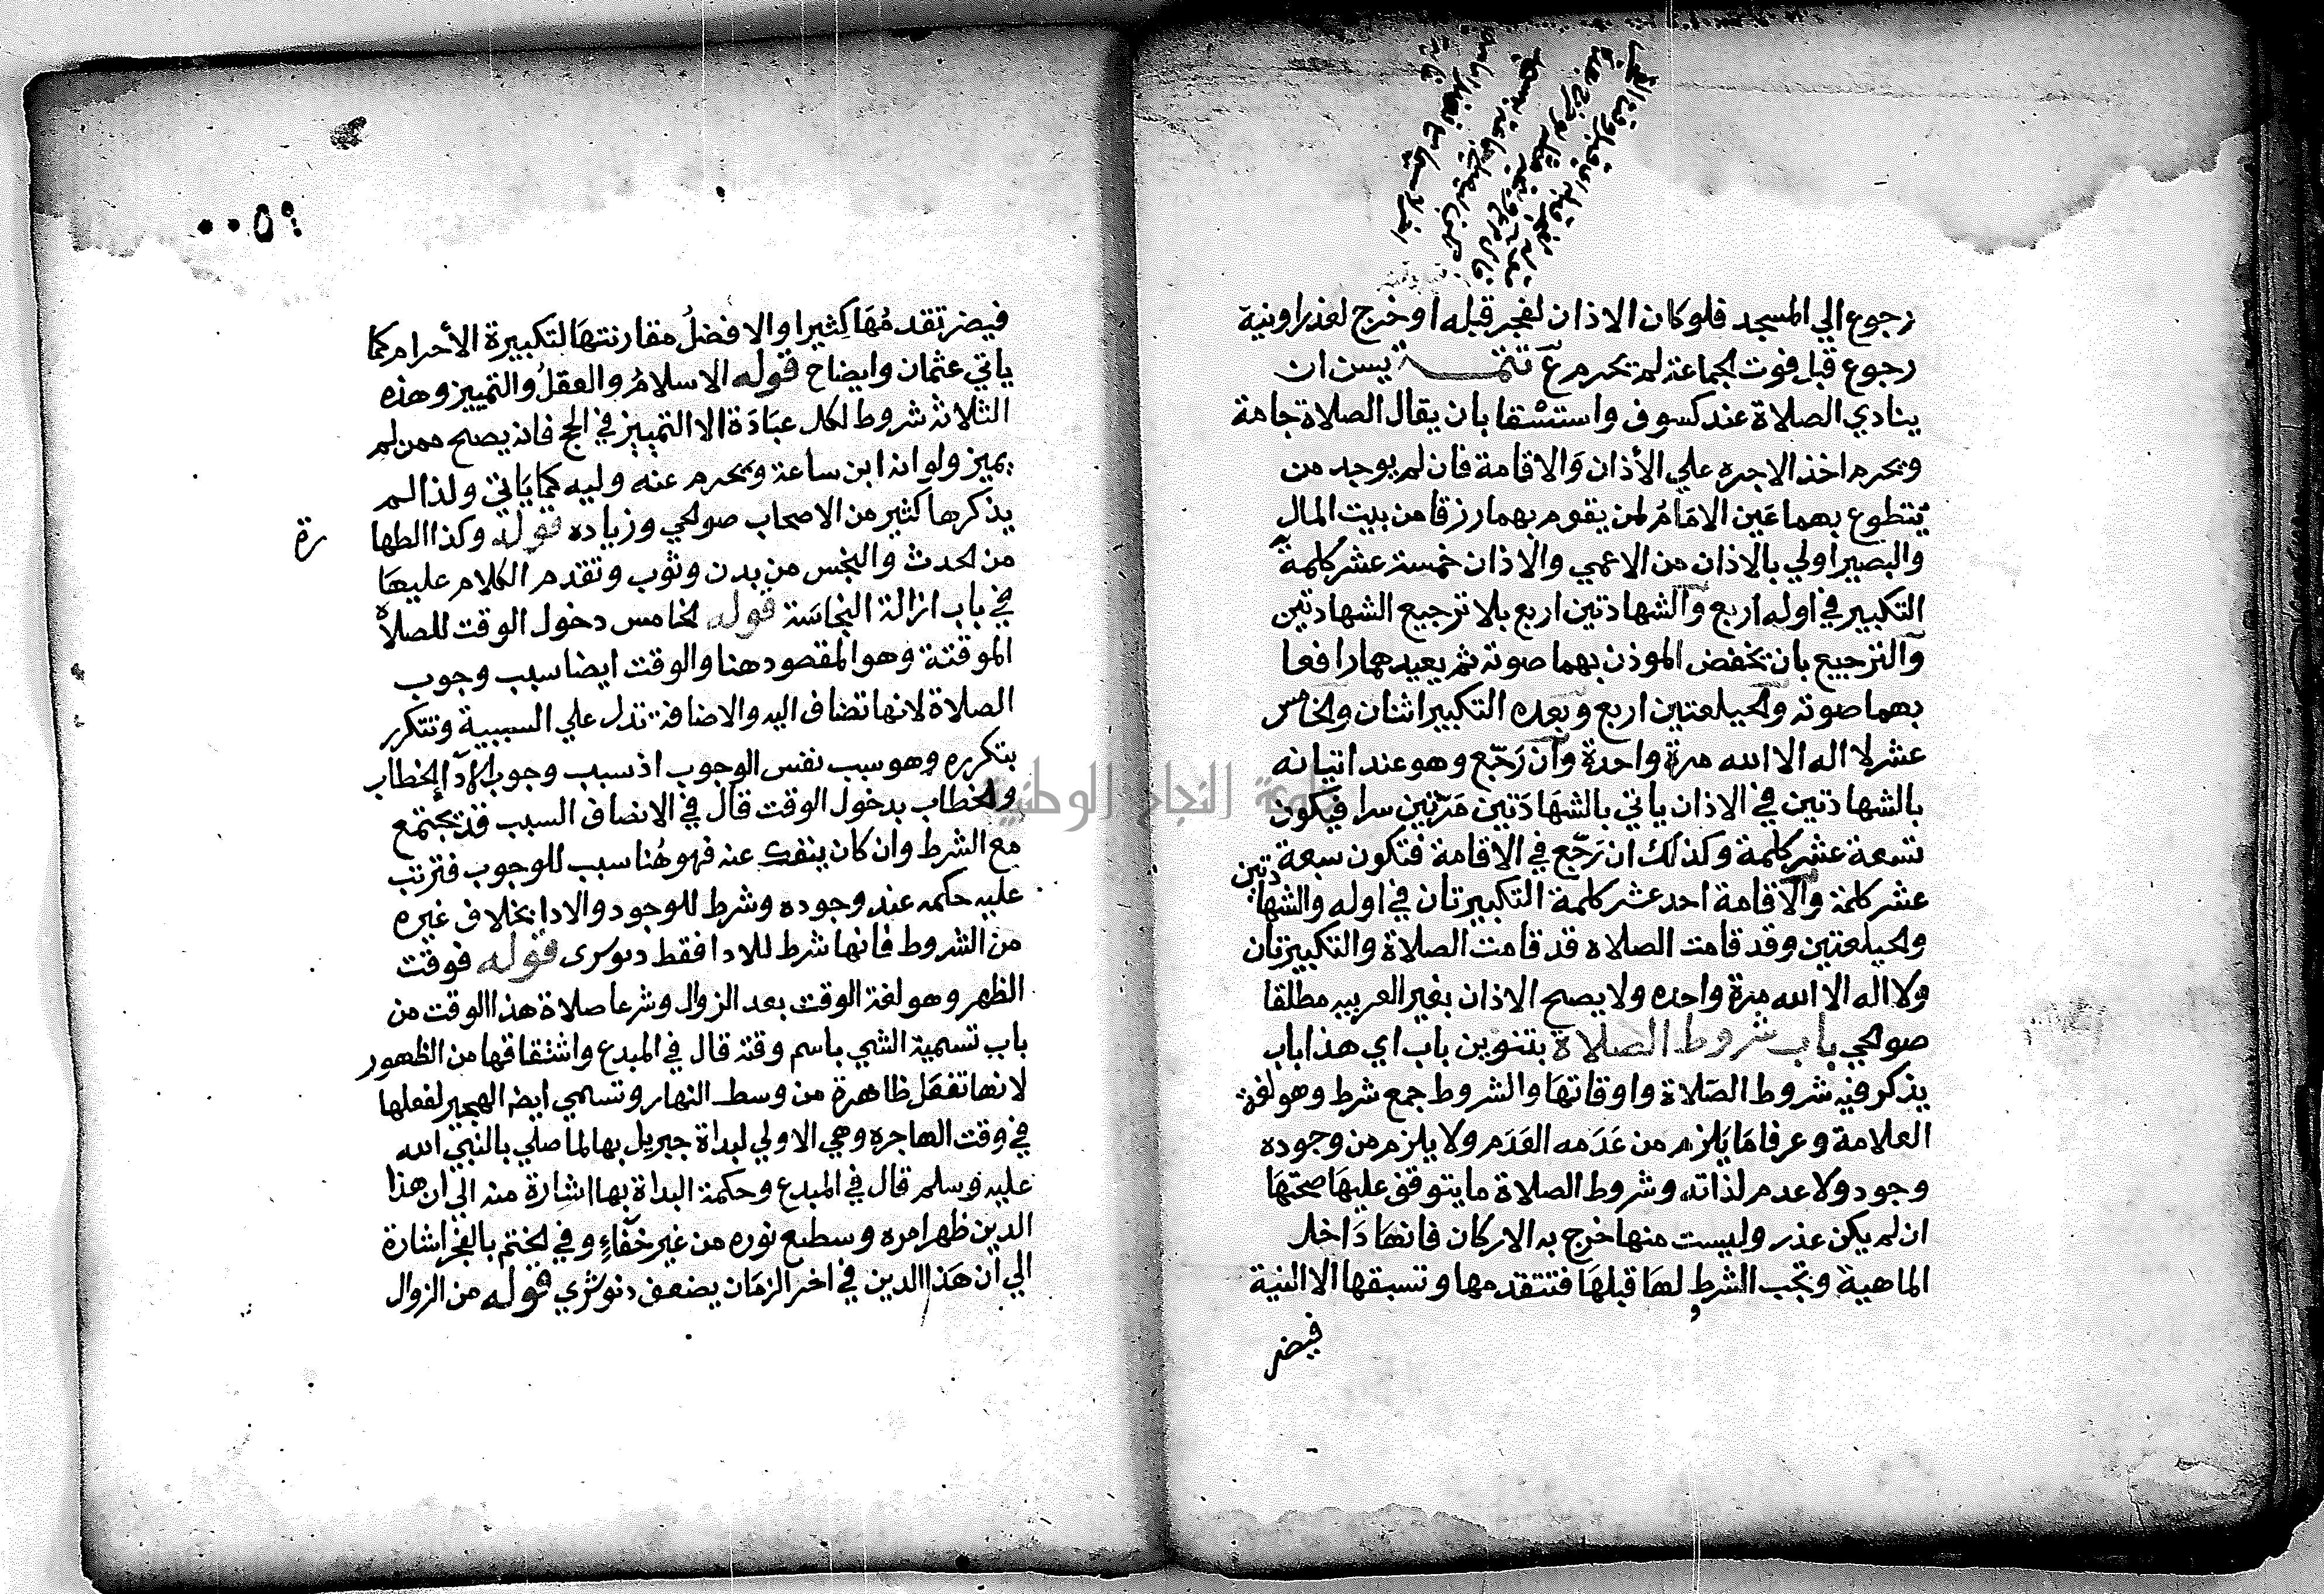 رجوع الي المسجد فلو كان الاذان لفجر قبله او خرج لعذر او نية
رجوع قبل فوت الجماعة لم يحرم ع تتمـــة يسن ان
ينادي الصلاة عند كسوف واستسقا بان يقال الصلاة جامة
ويحرم اخذ الاجره علي الأذان والاقامة فان لم يوجد من
يتطوع بهما عَين الامَامُ لمن يقوم بهما رزقا من بيت المال
والبصير اولي بالاذان من الاعمي والاذان خمسة عشر كلمة
التكبير في اوله اربع والشهادتين اربع بلا ترجيع الشهادتين
والترجيع بان يخفض الموذن بهما صوته ثم يعيدهما رافعا
بهما صوته والحيلعتين اربع وبعده التكبير اثنان والخامس
عشر لا اله الا الله مرة واحدة وان رَجّع وهو عند اتيانه
بالشهادتين في الاذان ياتي بالشهَادَتين مَرّتين سرا فيكون
تسعة عشر كلمة وكذلك ان رَجّع في الاقامة فتكون سبعة
عشر كلمة والاقامة احد عشر كلمة التكبيرتان في اوله والشهادتين
والحيلعتين وقد قامت الصلاه قد قامت الصلاة والتكبيرتان
ولا اله الا الله مرة واحده ولا يصح الاذان بغير العربيه مطلقا
صوالحي باب شروط الصلاة بتنوين باب اي هذا باب
يذكر فيه شروط الصَلاة واوقاتهَا والشروط جمع شرط وهو لغة
العلامة وعرفا مَا يَلزم من عَدَمه العَدَم ولا يلزم من وجوده
وجود ولا عدم لذاته وشروط الصلاة ما يتوقف عليهَا صحتهَا
ان لم يكن عذر وليست منها خرج به الاركان فانهَا دَاخل
الماهية وتجب الشروط لها قبلهَا فتتقدمها وتسبقها الا النية
فيضر
٠٠٥٩
فيضر تقدمُهَا كِثيرا والافضلُ مقارنتهَا لتكبيرة الأحرام كما
ياتي عثمان وايضاح قوله الاسلامُ والعقلُ والتمييز وهذه
الثلاثه شروط لكل عبَادَة الا التمييز في الحج فانه يصح ممن لم
يميز ولو انه ابن ساعة ويحرم عنه وليه كما يَاتي ولذا لم
يذكرها كثير من الاصحاب صوالحي وزياده قوله وكذا الطهارة
من الحدث والنجس من بدن وثوب وتقدم الكلام عليهَا
في باب ازالة النجاسَة قوله الخامس دخول الوقت للصلاة
الموقتة وهو المقصود هنا والوقت ايضا سبب وجوب
الصلاة لانها تضاف اليه والاضافة تدل علي السببية وتتكرر
بتكرره وهو سبب نفس الوجوب اذ سبب وجوب الادآ الخطاب
والخطاب بدخول الوقت قال في الانصاف السبب قد يجتمع
مع الشرط وان كان ينفك عنه فهو هُنا سبب للوجوب فترتب
عليه حكمه عند وجوده وشرط للوجود والادا بخلاف غيره
من الشروط فانها شرط للادا فقط دنوشري قوله فوقت
الظهر وهو لغة الوقت بعد الزوال وشرعا صلاة هذا الوقت من
باب تسمية الشي باسم وقته قال في المبدع واشتقاقها من الظهور
لانها تفعَل ظاهرة من وسط النهار وتسمي ايضا الهجير لفعلها
في وقت الهاجره وهي الاولي لبداة جبريل بها لما صلي بالنبي الله
عليه وسلم قال في المبدع وحكمة البداة بها اشارة منه الي ان هذا
الدين ظهر امره وسطع نوره من غير خفَآءٍ وفي الختم بالفجر اشارة
الي ان هَذا الدين في اخر الزمَان يضعف دنوشري قوله من الزوال